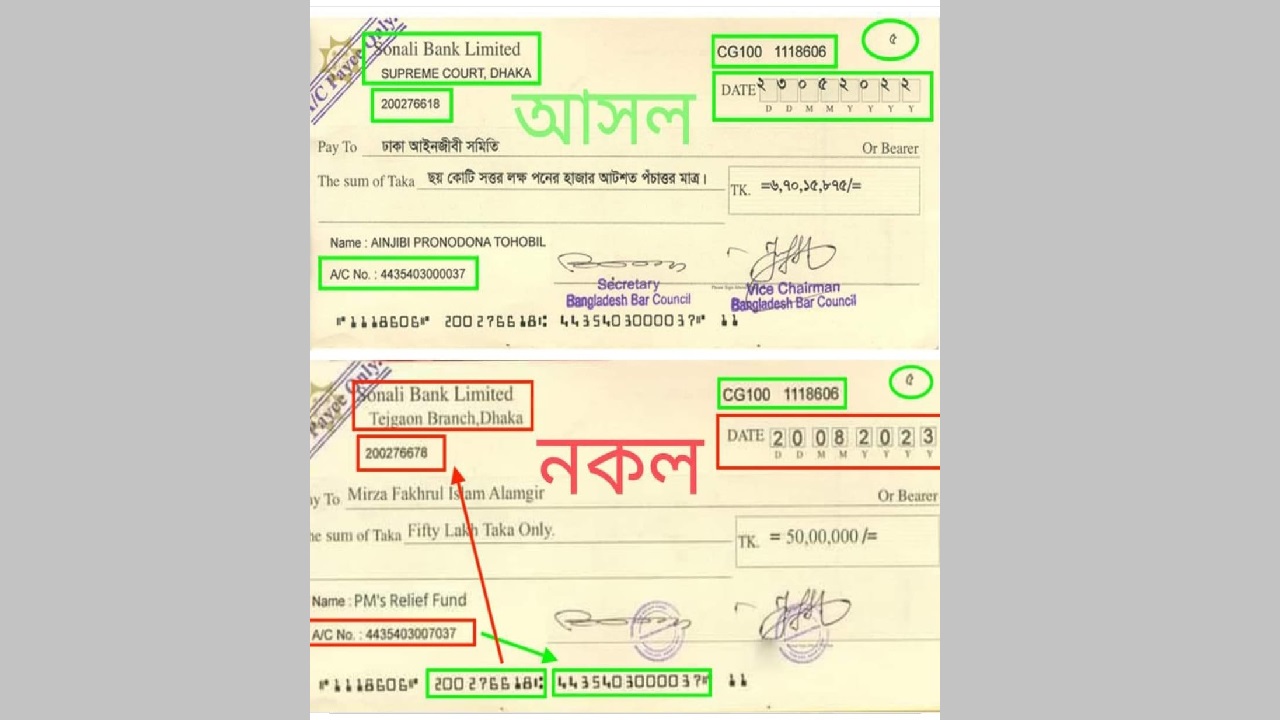 A/C Payee Only.
Sonali Bank Limited
SUPREME COURT, DHAKA
200276618
CG100 1118606
৫
DATE ২ ৩ ০ ৫ ২ ০ ২ ২
D D M M Y Y Y Y
আসল
Pay To ঢাকা আইনজীবী সমিতি Or Bearer
The sum of Taka ছয় কোটি সত্তর লক্ষ পনের হাজার আটশত পঁচাত্তর মাত্র।
TK. =৬,৭০,১৫,৮৭৫/=
Name : AINJIBI PRONODONA TOHOBIL
A/C No. : 4435403000037
Secretary
Bangladesh Bar Council
Vice Chairman
Bangladesh Bar Council
⑈1118606⑈ 200276618⑆ 4435403000037⑈ 11
Payee Only.
Sonali Bank Limited
Tejgaon Branch,Dhaka
200276678
CG100 1118606
৫
DATE 2 0 0 8 2 0 2 3
D D M M Y Y Y Y
নকল
ay To Mirza Fakhrul Islam Alamgir Or Bearer
he sum of Taka Fifty Lakh Taka Only.
TK. = 50,00,000 /=
Name : PM's Relief Fund
A/C No. : 4435403007037
⑈1118606⑈ 200276618⑆ 4435403000037⑈ 11